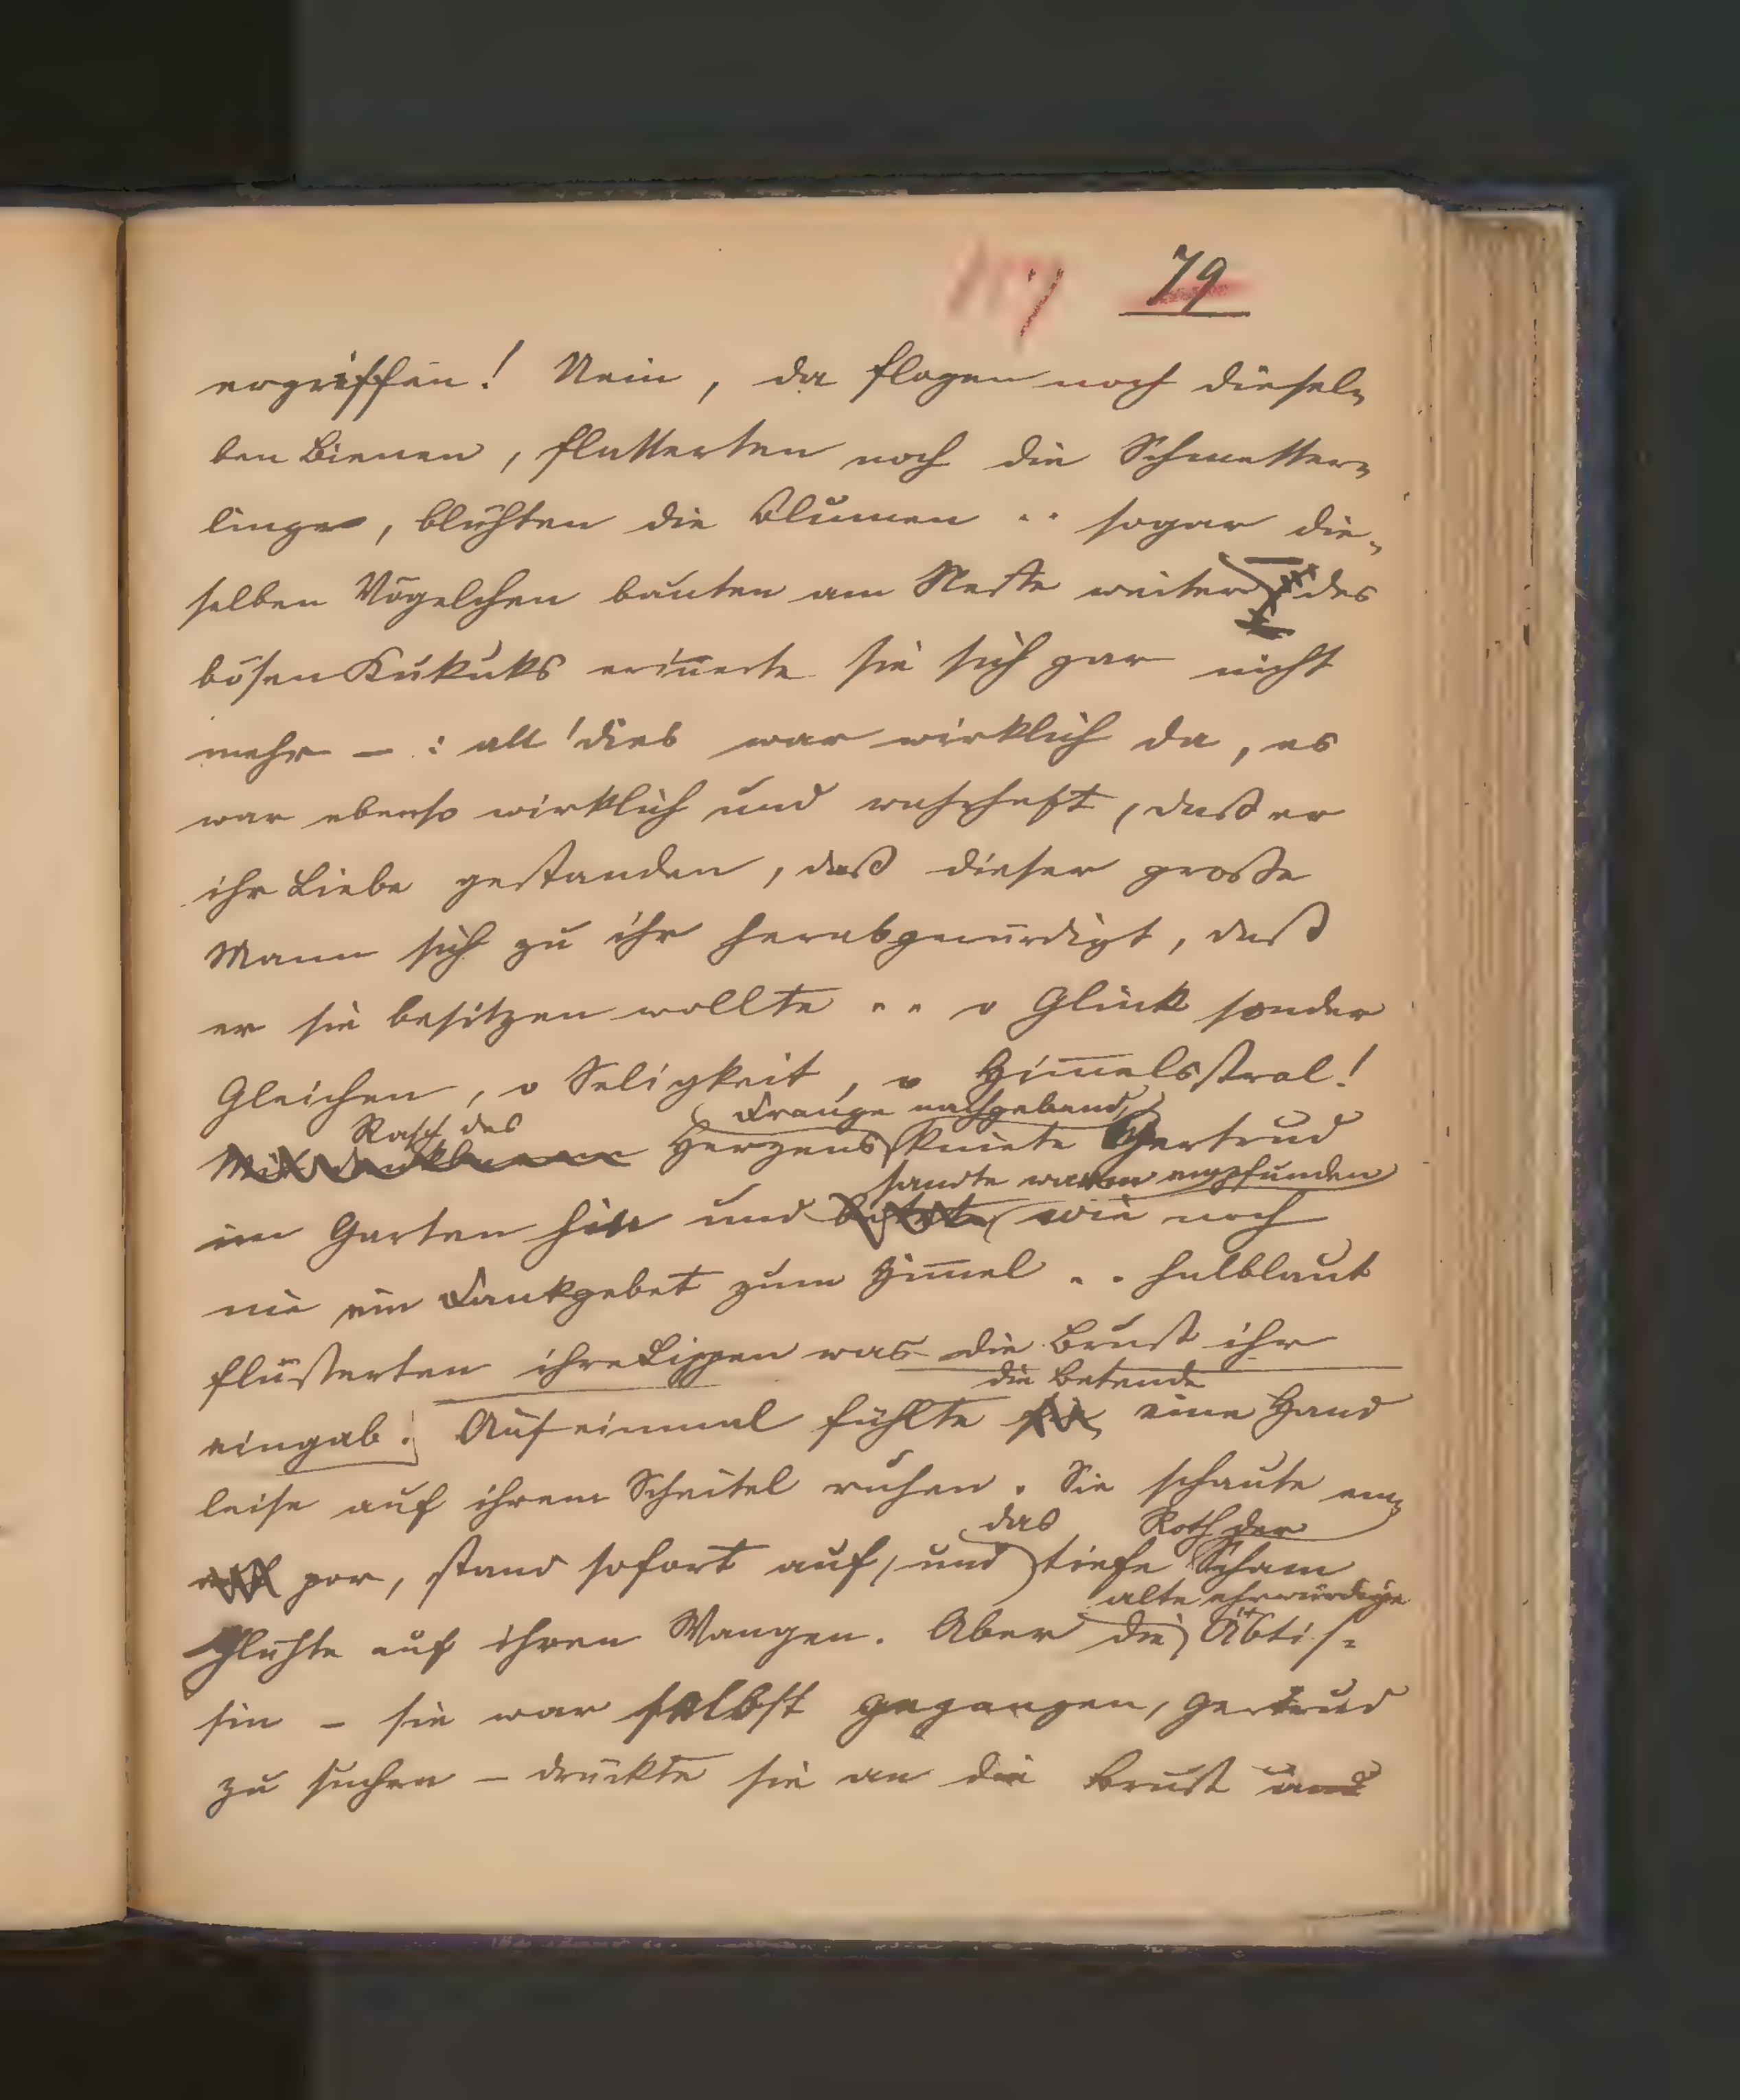 79
ergriffen! Nein, da flogen noch diesel-
ben Bienen, flatterten noch die Schmetter-
linge, blühten die Blumen .. sogar die-
selben Vögelchen bauten am Neste weiter des
bösen Kukuks erinnerte sie sich gar nicht
mehr – : all' dies war wirklich da, es
war ebenso wirklich und wahrhaft, daß er
ihr Liebe gestanden, daß dieser große
Mann sich zu ihr herabgewürdigt, daß
er sie besitzen wollte .. o Glück sonder
Gleichen, o Seligkeit, o Himmelsstral!
Rasch des Drange nachgebend,
Herzens kniete Gertrud
sandte warm empfunden
im Garten hin und wie noch
nie ein Dankgebet zum Himmel .. halblaut
flüsterten ihre Lippen was die Brust ihr
die Betende
eingab. Auf einmal fühlte sie eine Hand
leise auf ihrem Scheitel ruhen. Sie schaute em-
das Roth der
por, stand sofort auf, und tiefe Scham
alte ehrwürdige
glühte auf ihren Wangen. Aber die Äbtis-
sin – sie war selbst gegangen, Gertrud
zu suchen – drückte sie an die Brust und